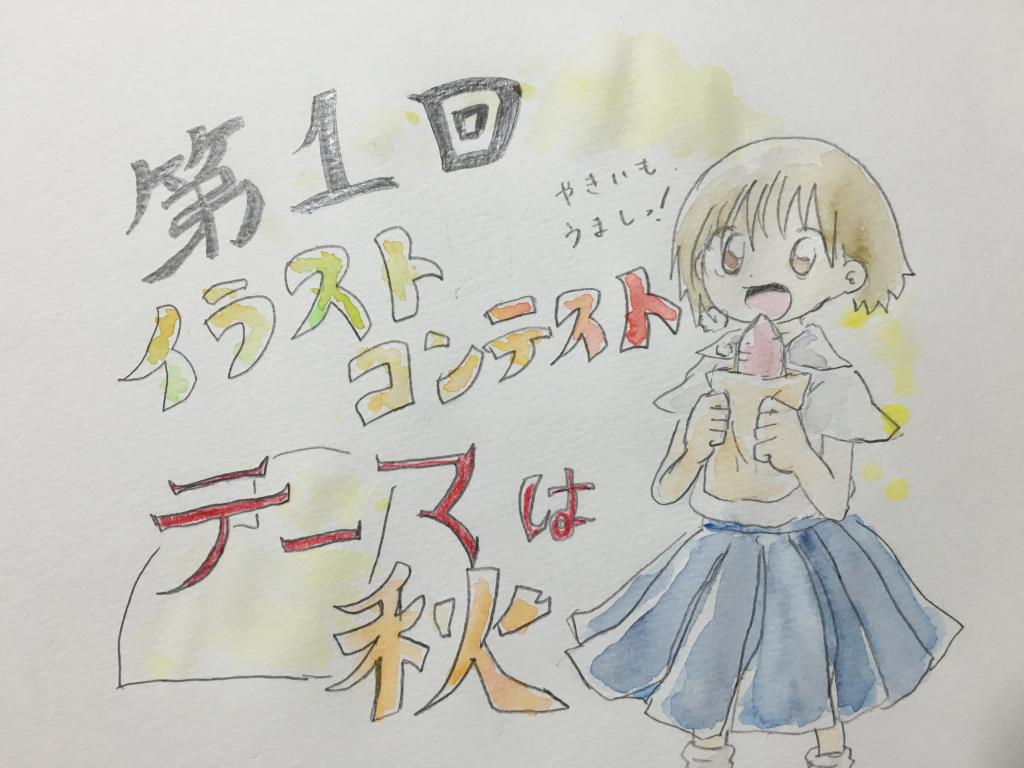 第1回
イラスト
コンテスト
テーマは
秋
やきいも
うましっ!